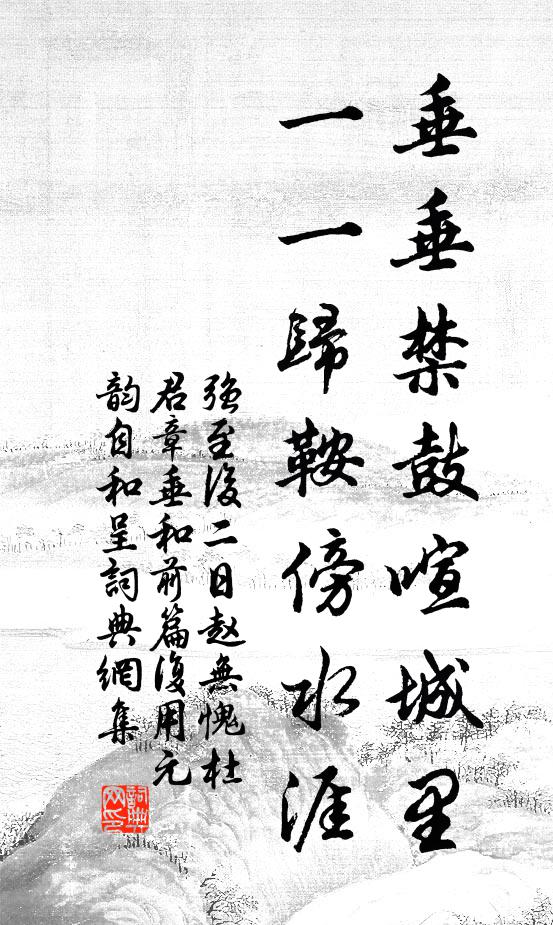 垂垂禁鼓喧城里
一一歸鞍傍水涯
強至後二日赵無愧杜
君章垂和前篇復用元
韵自和呈詞典網集